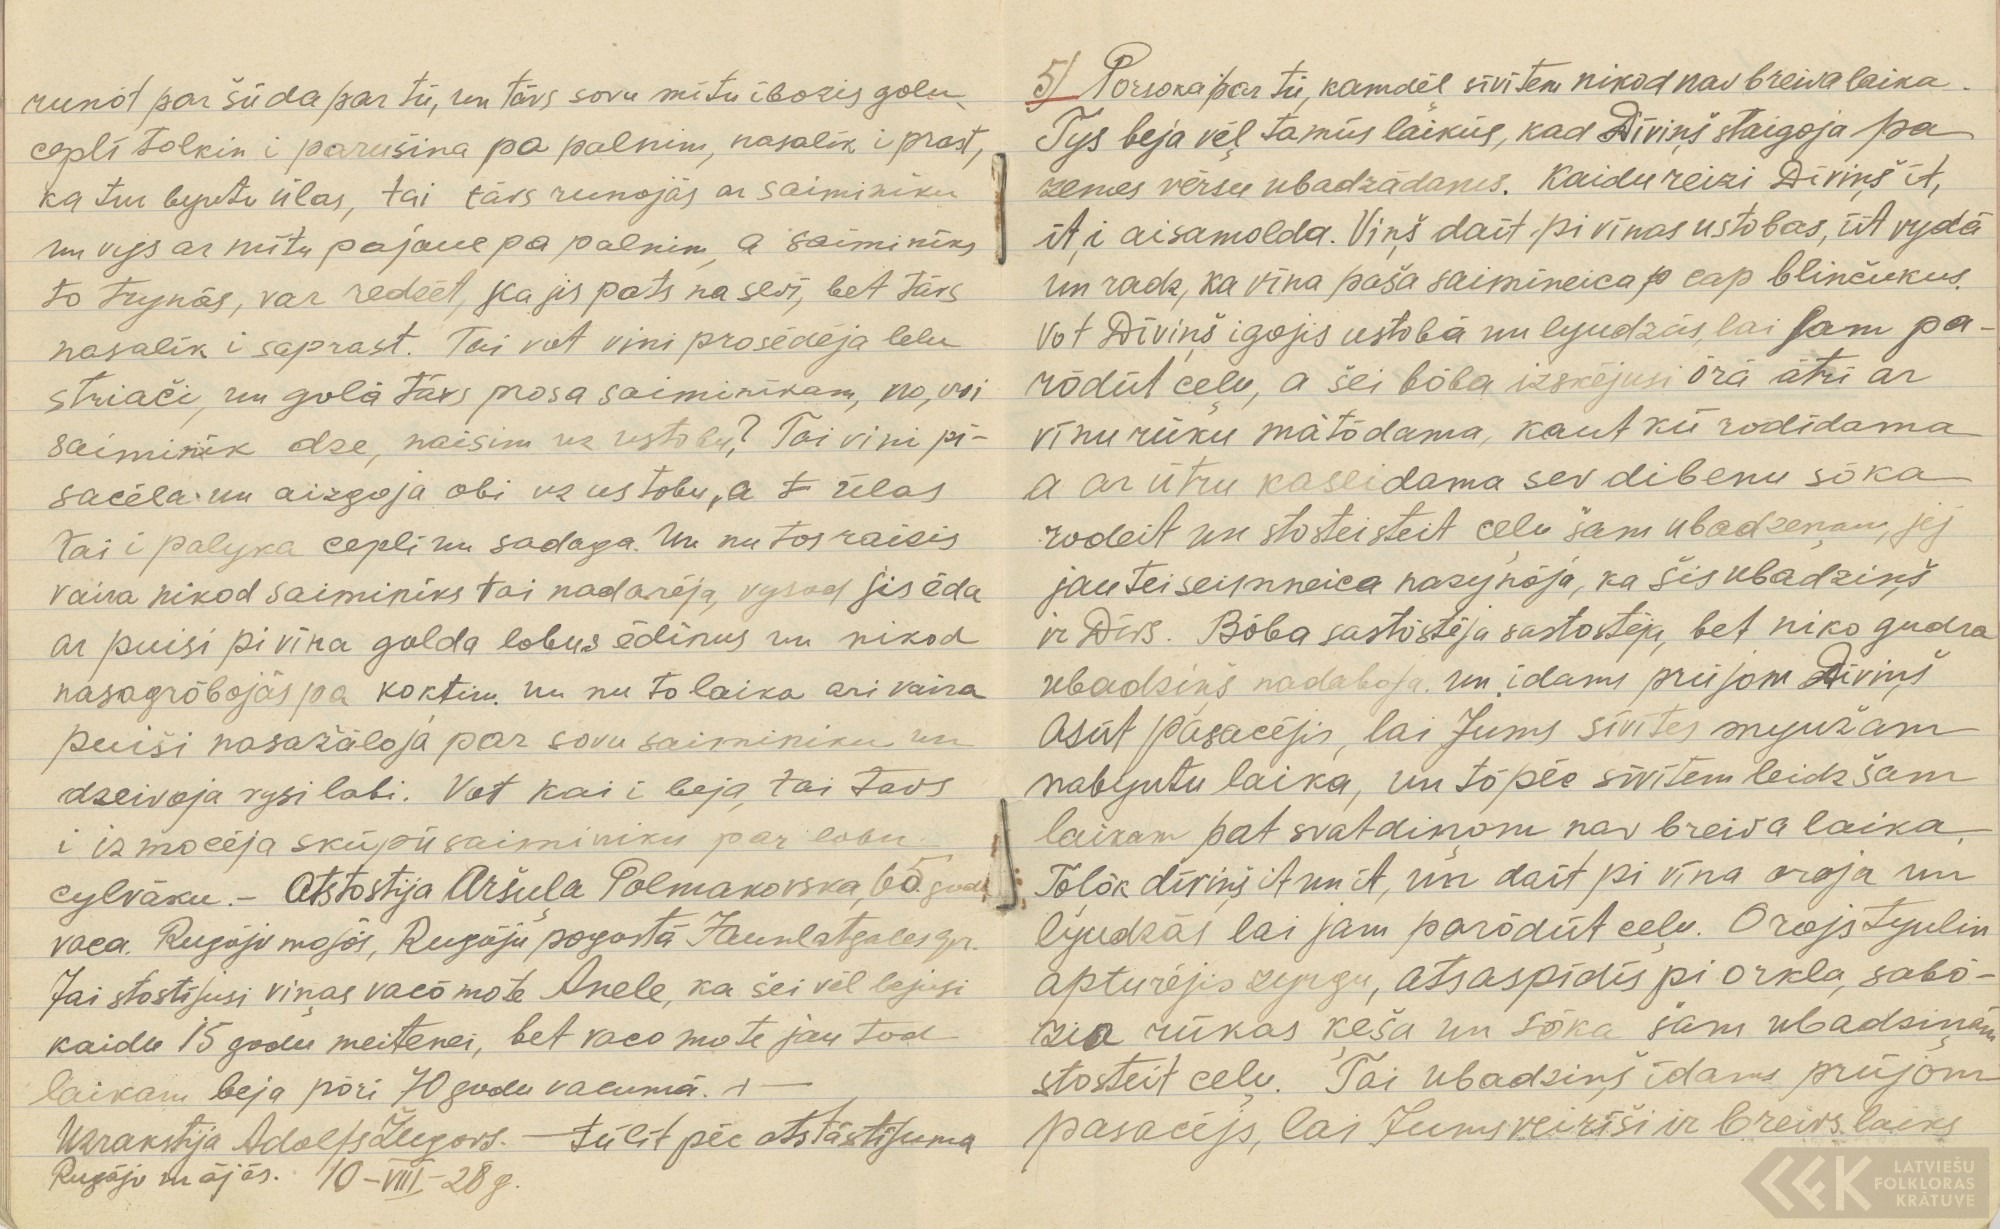 runót par šū da par tū, un tāvs sovu mītu íbozis golu
ceplī tolkin i parušina pa palnim, nasalīk i prast,
ka tur byutu ūlas, tai tāvs runojās ar saiminīku
un vys ar mītu pajauc pa palnim, a saiminīks
to trynās, var redzēt, ka jis pats na sevī, bet tāvs
nasalīk i saprast. Tai vot vini prosēdēja lelu
striači, un golā tāvs prosa saiminīkam, no, voi
saiminīk dze, naisim uz ustobu? Tai vini pī-
sacēla un aizgoja obi uz ustobu, a ūlas
tai i palyka ceplī un sadaga. Un nu tos raizis
vaira nikod saiminīks tai nadarēja, vysod jis ēda
ar puisi pi vīna golda lobus ēdīnus un nikod
nasagróbojās pa koktim. un nu to laika ari vaira
puiši nasažāloja par sovu saiminiku un
dzeivoja vysi labi. Vot kai i beja, tai tāvs
i izmocēja skūpū saiminiku par lobu
cylvāku.- Atstostija Aršuļa Polmakovska, 65 godi
vaca. Rugāju mojós, Rugāju pogostā Jaunlatgales apr.
Jai stostijusi viņas vacó mote Anele, ka šei vēl bejusi
kaidu 15 godu meitenei, bet vaco mote jau tod
laikam beja póri 70 godu vacumā. +—
Uzrakstija Adolfs Žugovs. — tūlīt pēc atstāstījuma
Rugāju mājās. 10-VIII-28 g.
5) Porsoka par tū, kamdēļ sīvītem nikod nav breiva laika.
Tys beja vēļ tamūs laikūs, kad Dīviņš staigoja pa
zemes vērsu ubadzādams. Kaidu reizi Dīviņš īt,
īt, i aisamolda. Viņš daīt pi vīnas ustobas, īīt vydā
un radz, ka vīna paša saimineica cap blinčukus.
Vot Dīviņš īgojis ustobā un lyudzās, lai jam pa-
ródūt ceļu, a šei bóba izskējusi órā ātri ar
vīnu rūku mātódama, kaut kū rodīdama
a ar ūtru kaseidama sev dibenu sóka
rodeit un stosteisteit ceļu šam ubadzeņam, jej
jau teiseneica nazynója, ka šis ubadziņš
ir Dīvs. Bóba sastóstēja sastostēja, bet niko gudra
ubadziņš nadaboja. un īdams prūjom Dīviņš
asūt pasacējis, lai Jums sīvītes myužam
nabyutu laika, un tópēc sīvītem leidz šam
laikam pat svātdiņom nav breiva laika.
Tolók dīviņš īt un īt, un daīt pi vīna oroja un
lyudzās lai jam paródūt ceļu. Orojs tyulin
apturējis zyrgu, atsaspīdis pi orkla, sabó-
zia rūkas ķeša un sóka šam ubadzinām
stosteit ceļu. Tai ubadziņš īdams prūjóm
pasacējs, lai Jums veirīši ir breivs laiks
LATVIEŠU
FOLKLORAS
KRĀTUVE